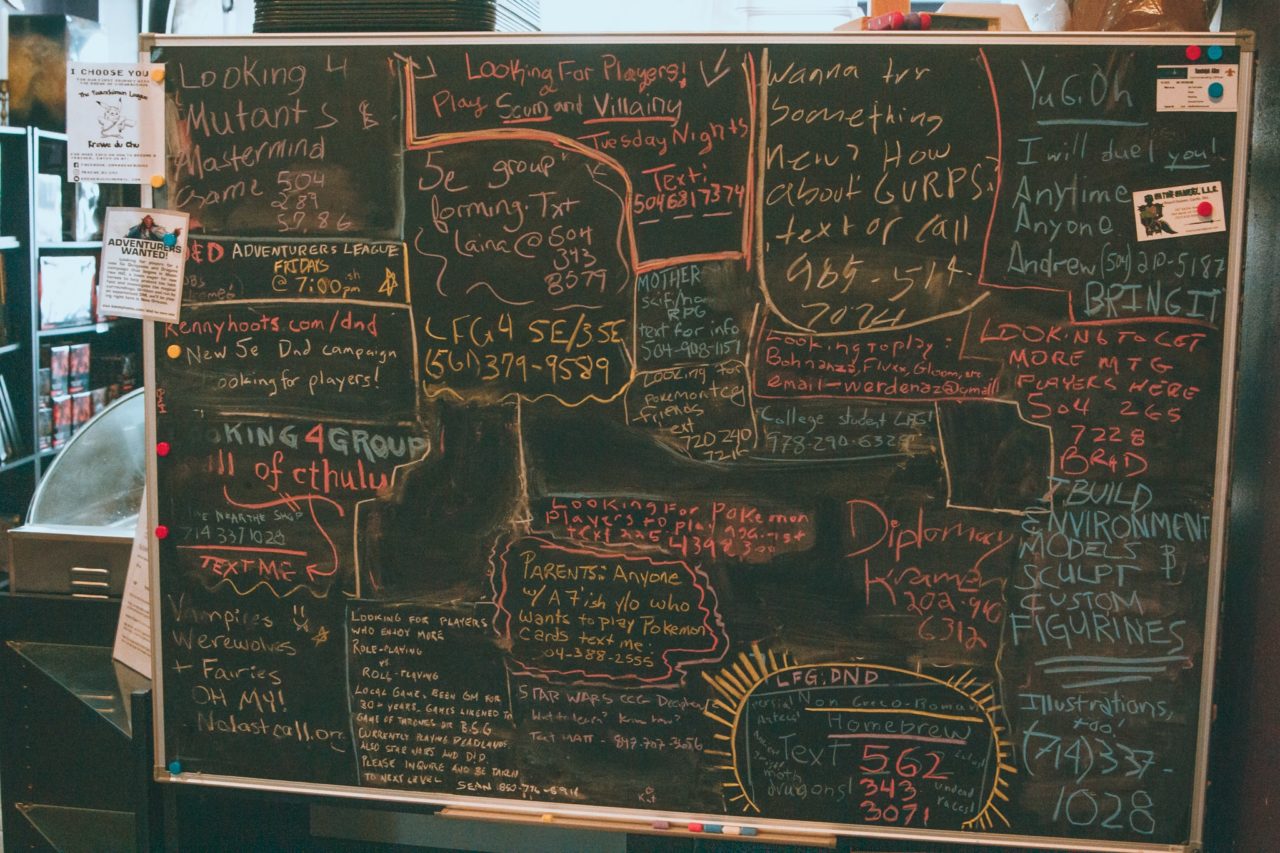 I CHOOSE YOU
Krewe du Chu
ADVENTURERS
WANTED!
Looking 4
Mutants &
Mastermind
Game 504
289
5786
D&D ADVENTURERS LEAGUE
FRIDAYS
@ 7:00pm
kennyhoots.com/dnd
New 5e Dnd campaign
looking for players!
KING 4 GROUP
ll of cthulu
NEAR THE SHOP
714 337 1028
TEXT ME
Vampires
Werewolves
+ Fairies
OH MY!
Nolastcall.org
Looking For Players!
Play Scum and Villainy
Tuesday Nights
Text:
5046817374
5e group
forming. Txt
Laina @ 504
343
8579
LFG 4 5E/3.5E
(561) 379-9589
MOTHER
RPG
text for info
504-908-1157
Looking for
Pokemon TCG
friends
text
720 240
7216
Wanna try
Something
new? How
about GURPS?
text or call
985-514-
2024
Looking to play:
Bohnanza, Fluxx, Gloom, etc
email-werdenaz@gmail
College student LFG!
978-290-6328
YuGiOh
I will duel you!
Anytime
Anyone
Andrew (504) 210-5187
BRING IT
LOOKING TO GET
MORE MTG
PLAYERS HERE
504 265
7228
BRAD
I BUILD
ENVIRONMENT
MODELS &
SCULPT
CUSTOM
FIGURINES
Illustrations,
too!
(714)337-
1028
Looking For Pokemon
Players to play against
Text 225 439 2300
PARENTS: Anyone
w/ A 7ish y/o who
wants to play Pokemon
Cards text me:
04-388-2555
Diplomacy
Kramer
202-910
6312
LOOKING FOR PLAYERS
WHO ENJOY MORE
ROLE-PLAYING
VS
ROLL-PLAYING
LOCAL GAME, BEEN GM FOR
30+ YEARS. GAMES LIKENED TO
GAME OF THRONES OR B.S.G
CURRENTLY PLAYING DEADLANDS
ALSO STAR WARS AND D&D.
PLEASE INQUIRE AND BE TAKEN
TO NEXT LEVEL
SEAN
STAR WARS CCG Decipher
Want to learn? Know how?
Text MATT - 847-707-3056
LFG: DND
Non Greco-Roman
Homebrew
Text 562
343
3071
moth
dragons!
undead
races!